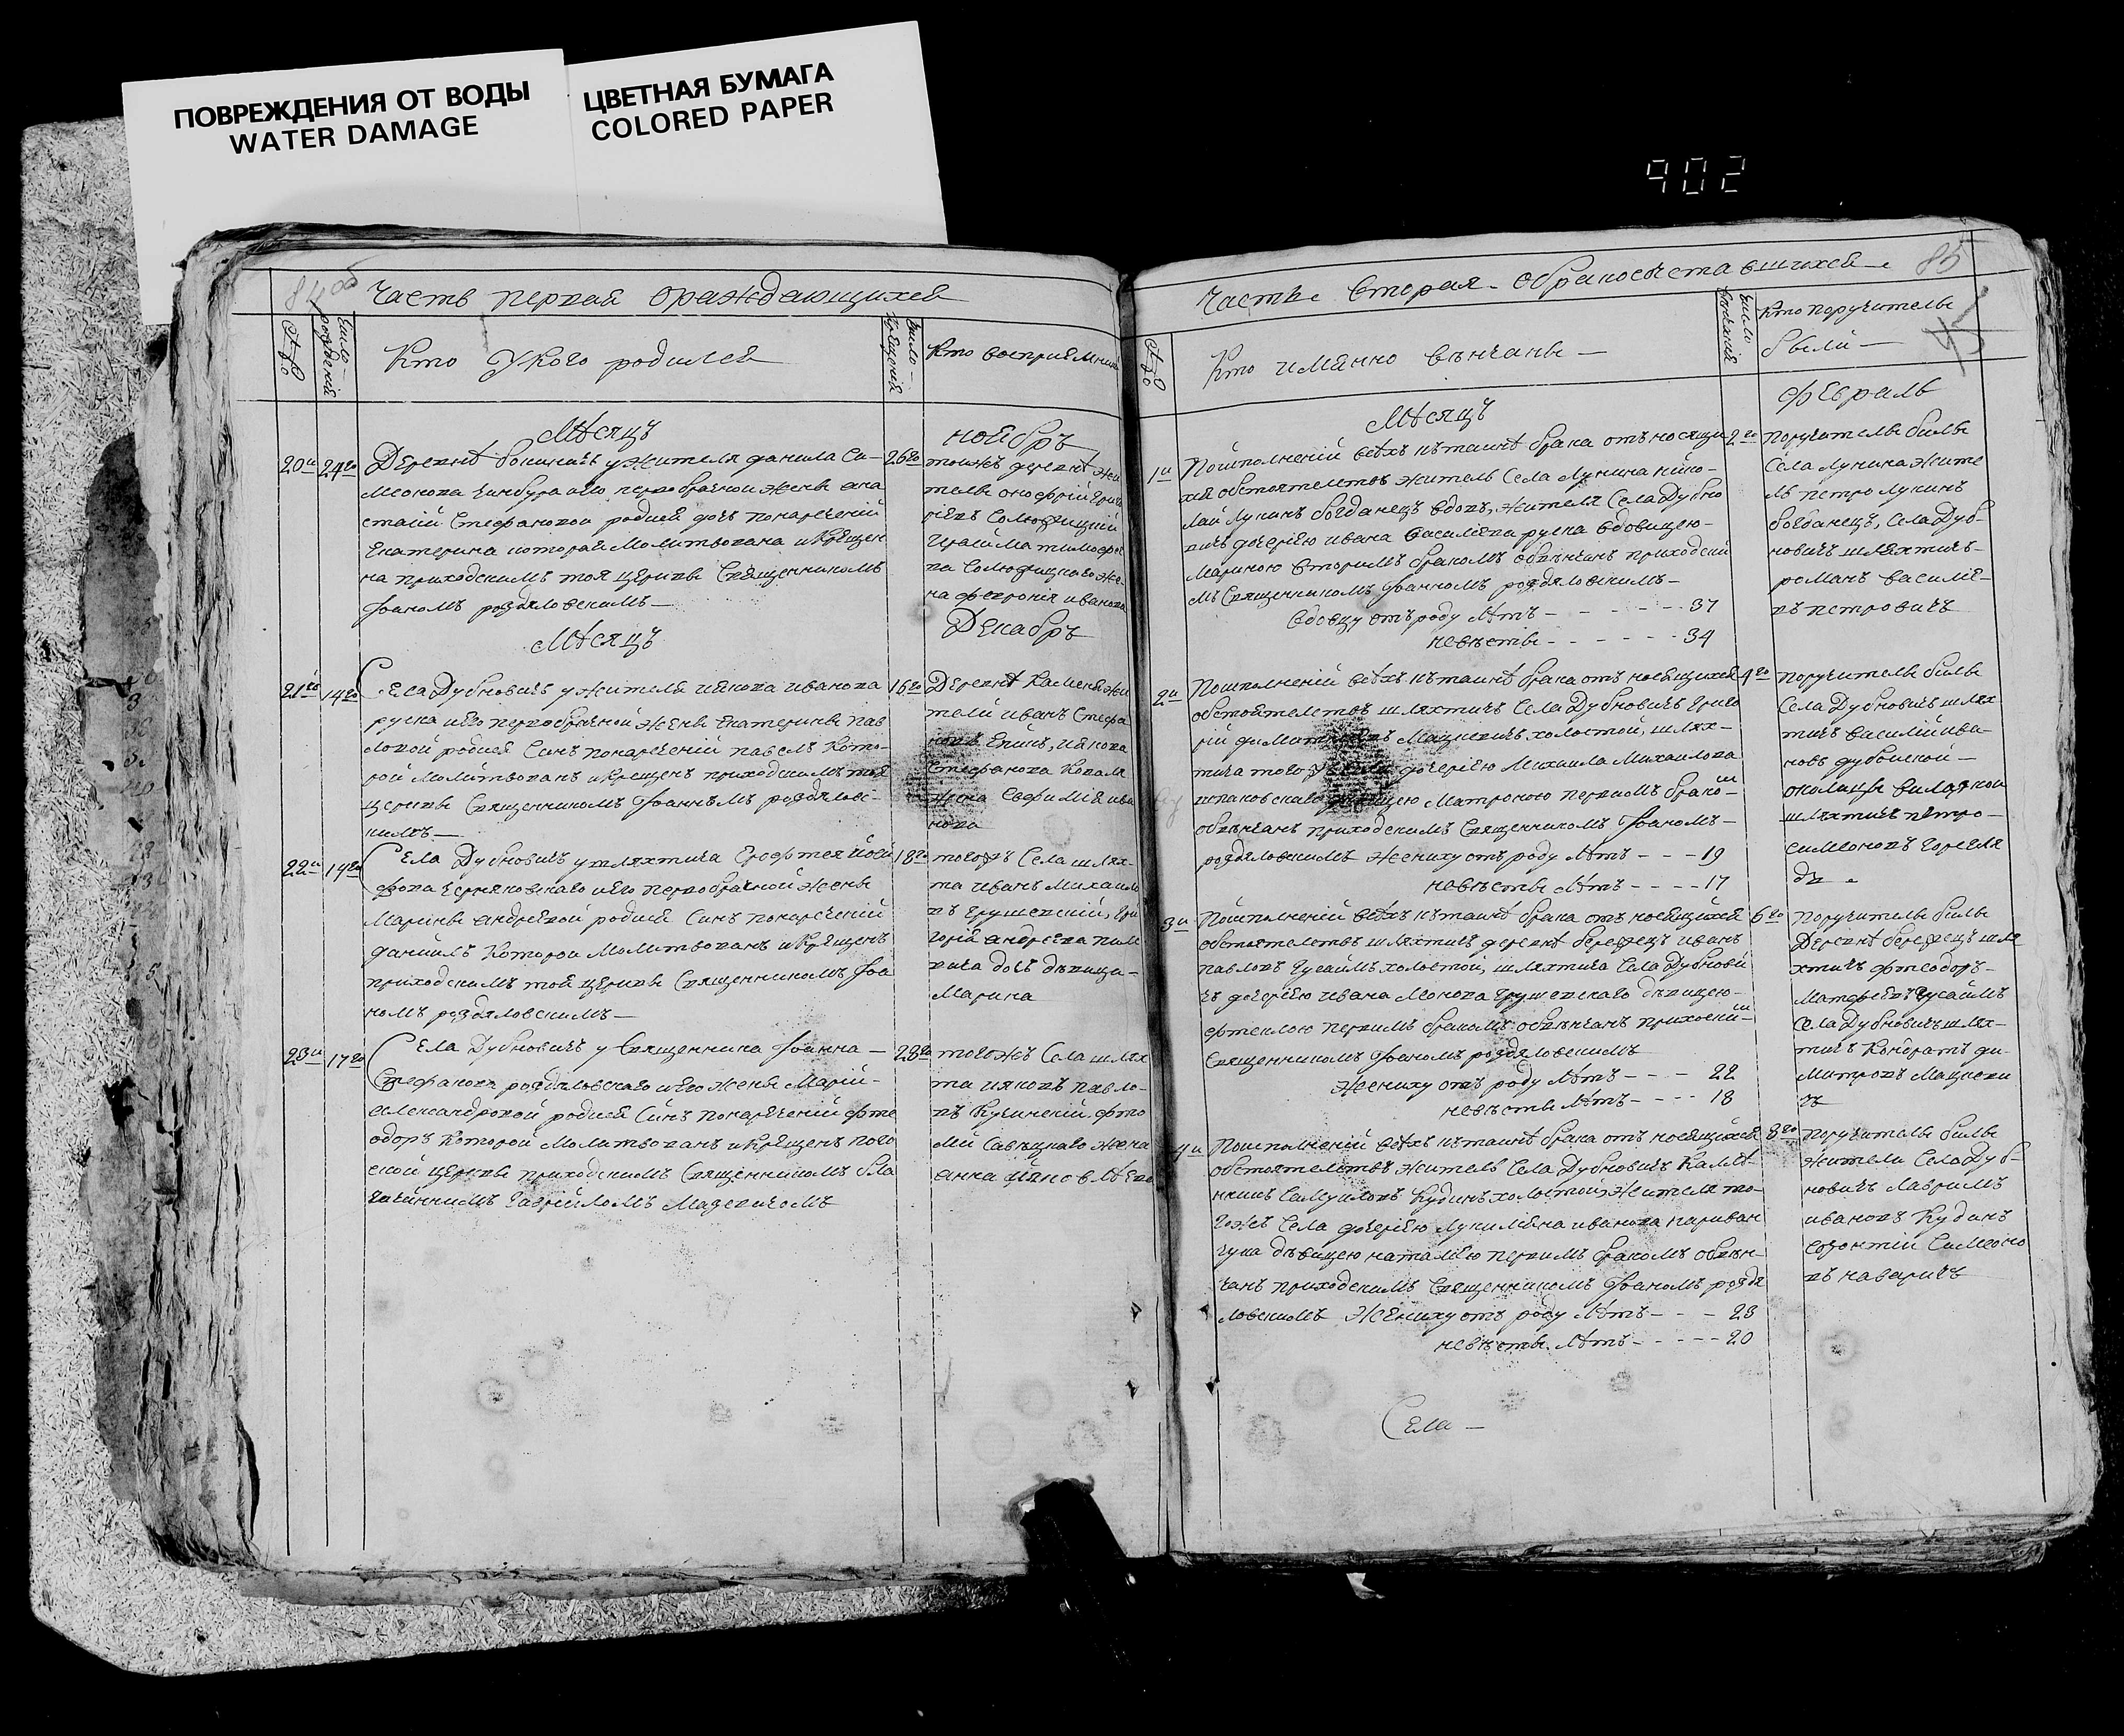 ПОВРЕЖДЕНИЯ ОТ ВОДЫ
WATER DAMAGE
ЦВЕТНАЯ БУМАГА
COLORED PAPER
902
84об
Часть первая ораждающихся
Число рождения
Кто Укого родился
Число крещения
Кто восприемники
Мѣсяцъ
ноябрь
20и
24го
Деревнѣ у жителя данила Си-
меонова его первобрачной жены ана
стасій Стефановой родися дочь понаречений
Екатерина которая Молитвована и Крещен
на приходскимъ тоя церкви Священникомъ
Іоаномъ роздяловскимъ —
26го
тоижъ деревнѣ жи
тель онофрій
Герасима тимофее
ва жe-
на февронія иванова
Мѣсяцъ
Декабрь
21го
14го
Села Дубновичъ у жителя иякова иванова
руска иего первобрачной жены Екатерины пав
ловой родися Синъ понаречений павелъ Кото-
рой Молитвованъ и Крещенъ приходскимъ тоя
церкви Священникомъ Іоаннъмъ роздяловс-
кимъ —
16го
Деревнѣ Каменя жи
тели иванъ Стефа
новъ иякова
Стефанова Коваля
жена Евфимія ива
нова
22и
14го
Села Дубновичъ у шляхтича Ерофтея
иего первобрачной жены
Марины андрѣевой родися Синъ понаречений
даниилъ Которой Молитвованъ и Крещенъ
приходскимъ той церкви Священникомъ Іоа
номъ роздяловскимъ —
18го
тогожъ Села шлях-
та иванъ Михаило
въ Грушевскій, Гри
горія андрѣева
дочь дѣвица-
Марина
23и
17го
Села Дубновичъ у Священника Іоанна —
Стефанова роздяловскаго иего жены Марій-
александровой родися Синъ понаречений фте
одоръ Которой Молитвованъ и Крещенъ
ской церкви приходскимъ Священникомъ бла
гочиннимъ Гавріиломъ Мацевичомъ
28го
тогожъ Села шлях
та ияковъ павло-
въ Кучинскій
жена
анна
85
Часть Вторая обракосочетавшихся
Кто имянно вѣнчаны —
Число венчания
Кто поручители
были —
Мѣсяцъ
февраль
1и
Поисполненій всѣхъ кътаинѣ брака отъносящи
хся обстоятелствъ житель Села Лунина нико-
лай Лукинъ богданецъ вдовъ, жителя Села Дубно
вичъ дочерію ивана василіева руска вдовицею-
Мариною вторимъ бракомъ обвѣнчанъ приходски
мъ Священникомъ Іоанномъ роздяловскимъ-
вдовцу отъ роду лѣтъ - - - - - - 37
невѣсты - - - - - - 34
2го
поручители били
Села Лунина жите
ль петро Лукинъ
богданецъ, Села Дуб-
новичъ шляхтичъ-
романъ василіе-
въ петровичъ
2и
Поисполненій всѣхъ кътаинѣ брака отъ носящихся
обстоятелствъ шляхтичъ Села Дубновичъ Григо
рій Мацкевичъ холостой, шлях-
тича того дочерію Михаила Михаилова
Матроною первимъ брако-
обвѣнчанъ приходскимъ Священникомъ Іоаномъ-
роздяловскимъ жениху отъ роду лѣтъ - - - 19
невѣсты лѣтъ - - - - 17
4го
поручители били
Села Дубновичъ шлях
тичъ василій ива-
новъ дубойской —
околицы
шляхтичъ петро-
симеоновъ
3и
Поисполненій всѣхъ кътаинѣ брака отъ носящихся
обстоятелствъ шляхтичъ деревнѣ бережецъ иванъ
павловъ холостой, шляхтича Села Дубнови
чъ дочерію ивана грушевскаго дѣвицею-
фтеклою первимъ бракомъ обвѣнчанъ
Священникомъ Іоаномъ роздяловскимъ
жениху отъ роду лѣтъ - - - 22
невѣсты лѣтъ - - - - 18
6го
поручители били
Деревнѣ бережецъ шля
хтичъ фтеодоръ-
Села Дубновичъ шлях-
тичъ Кондратъ ди-
митровъ Мацкеви
чъ
4и
Поисполненій всѣхъ кътаинѣ брака отъ носящихся
обстоятелствъ житель Села Дубновичъ
Самуиловъ Кудинъ холостой, жителя то-
гожъ Села дочерію иванова
дѣвицею наталією первимъ бракомъ обвѣн-
чанъ приходскимъ Священникомъ Іоаномъ роздя
ловскимъ жениху отъ роду лѣтъ - - - 23
невѣсты лѣтъ - - - - - 20
8го
поручители били
жители Села Дуб-
новичъ
ивановъ Кудинъ
Симеоно
въ
Села —